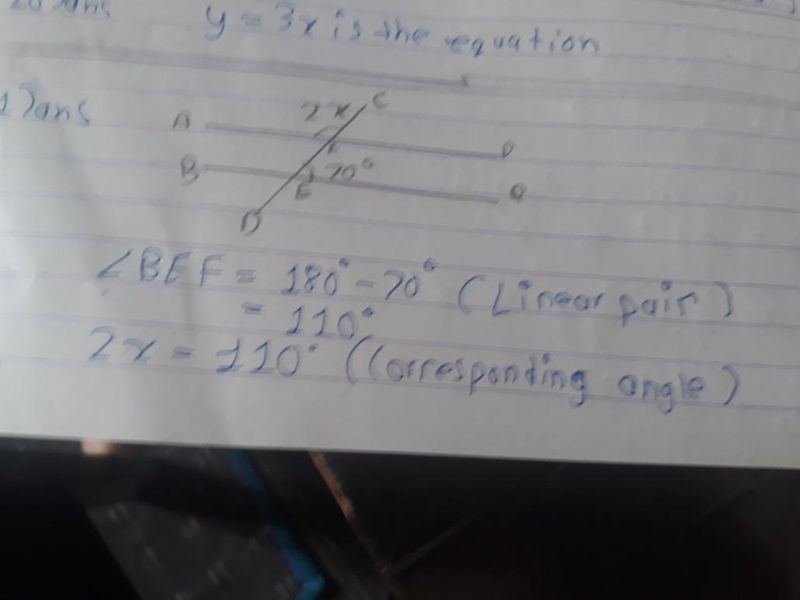 ans
y = 3x is the equation
1) ans
2x
C
A
F
P
B
70°
E
Q
D
∠BEF = 180° - 70° (Linear pair)
= 110°
2x = 110° (Corresponding angle)